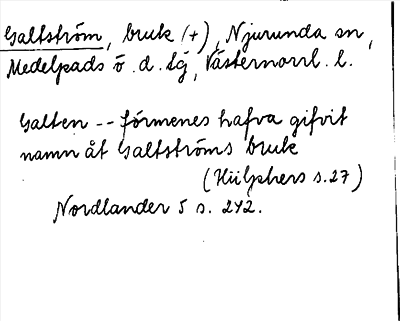 Galtström, bruk (+), Njurunda sn,
Medelpads ö. d. tg, Västernorrl. l.
Galten -- förmenes hafva gifvit
namn åt Galtströms bruk
(Hülphers s. 27)
Nordlander 5 s. 242.